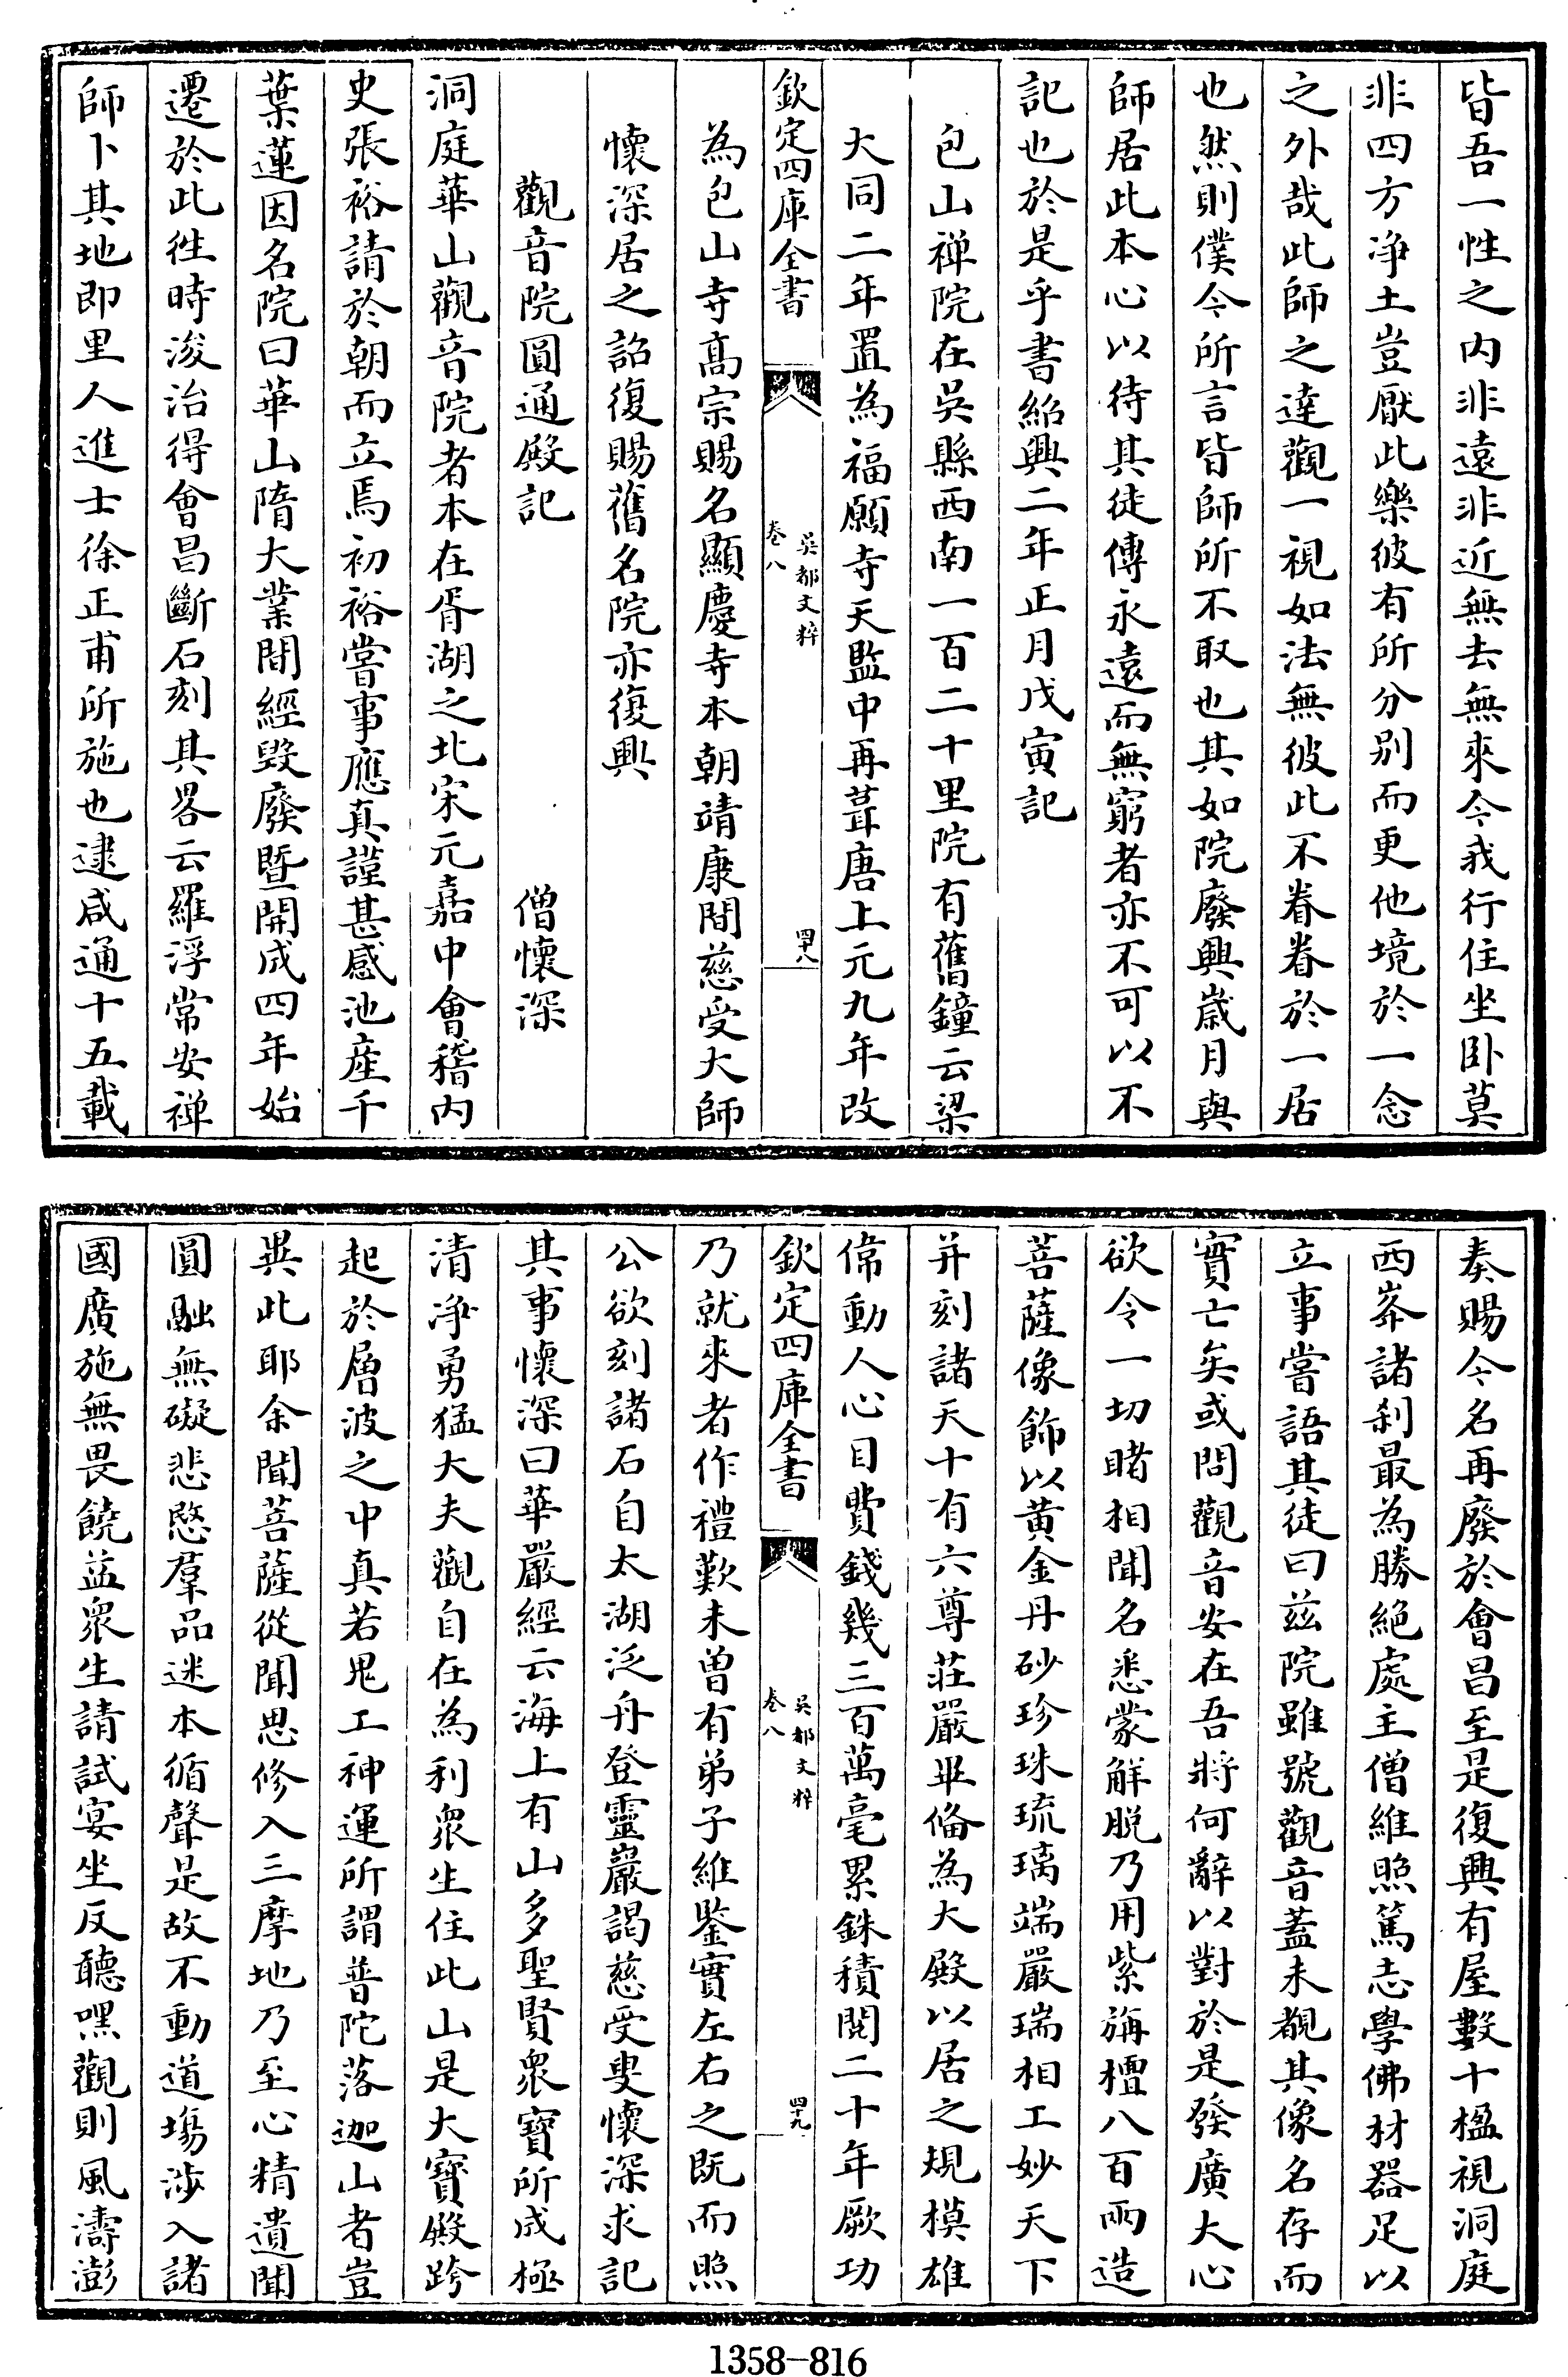 皆吾一性之内非遠非近無去無來今我行住坐卧莫
非四方浄土豈厭此樂彼有所分别而更他境於一念
之外哉此師之達觀一視如法無彼此不眷眷於一居
也然則僕今所言皆師所不取也其如院廢興嵗月與
師居此本心以待其徒傳永遠而無窮者亦不可以不
記也於是乎書紹興二年正月戊寅記
包山禅院在吳縣西南一百二十里院有舊鐘云梁
大同二年置為福願寺天監中再葺唐上元九年改
欽定四庫全書
吳都文粹
卷八
四十八
為包山寺髙宗賜名顯慶寺本朝靖康間慈受大師
懷深居之詔復賜舊名院亦復興
觀音院圓通殿記
僧懷深
洞庭華山觀音院者本在胥湖之北宋元嘉中會稽内
史張裕請於朝而立焉初裕嘗事應真謹甚感池産千
葉蓮因名院曰華山隋大業間經毁廢暨開成四年始
遷於此徃時浚治得會昌斷石刻其畧云羅浮常安禅
師卜其地即里人進士徐正甫所施也逮咸通十五載
奏賜今名再廢於會昌至是復興有屋數十楹視洞庭
西峯諸刹最為勝絶處主僧維照篤志學佛材器足以
立事嘗語其徒曰兹院雖號觀音蓋未覩其像名存而
實亡矣或問觀音安在吾將何辭以對於是發廣大心
欲令一切睹相聞名悉蒙解脱乃用紫旃檀八百兩造
菩薩像飾以黄金丹砂珍珠琉璃端嚴瑞相工妙天下
并刻諸天十有六尊莊嚴畢備為大殿以居之規模雄
偉動人心目費錢幾三百萬毫累銖積閲二十年厥功
欽定四庫全書
吳都文粹
卷八
四十九
乃就來者作禮歎未曽有弟子維鑒實左右之既而照
公欲刻諸石自太湖泛舟登靈巖謁慈受叟懷深求記
其事懷深曰華嚴經云海上有山多聖賢衆寶所成極
清浄勇猛大夫觀自在為利衆生住此山是大寶殿跨
起於層波之中真若鬼工神運所謂普陀落迦山者豈
異此耶余聞菩薩從聞思修入三摩地乃至心精遺聞
圓融無礙悲愍羣品迷本循聲是故不動道塲涉入諸
國廣施無畏饒益衆生請試宴坐反聽嘿觀則風濤澎
1358-816